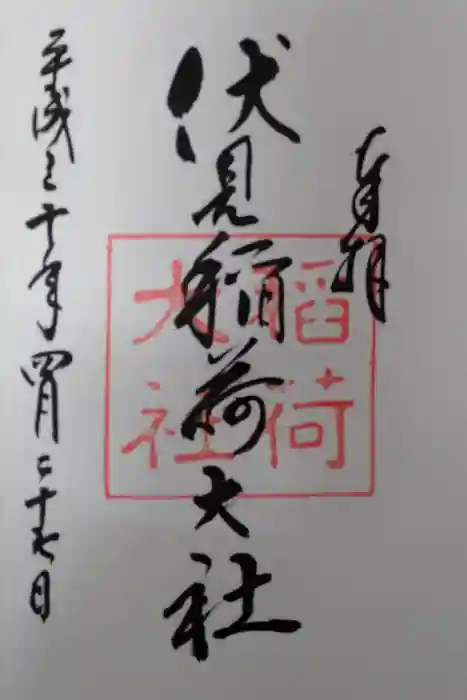 奉拝
伏見稲荷大社
稲荷
大社
平成三十年四月二十七日